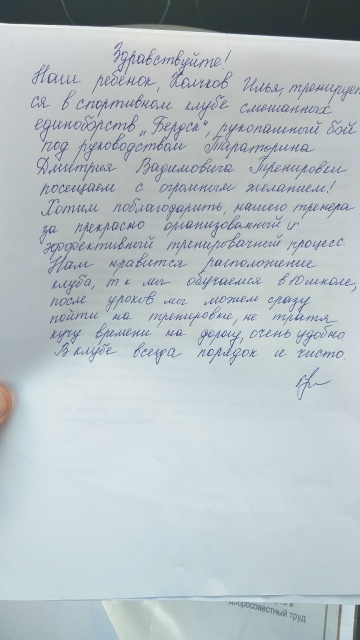 Здравствуйте!
Наш ребенок, Колчков Илья, тренирует
ся в спортивном клубе смешанных
единоборств „Бердск", рукопашный бой
под руководствам Тараторина
Дмитрия Вадимовича Тренировки
посещаем с огромным желанием!
Хотим поблагодарить, нашего тренера
за прекрасно организованный и
эффективный тренировачный процесс
Нам нравится расположение
клуба, т к мы обучаемся в Юшколе,
после уроков мы можем сразу
пойти на тренировке, не тратя
кучу времени на дорогу, очень удобно
В клубе всегда порядок и чисто
добросовестный труд